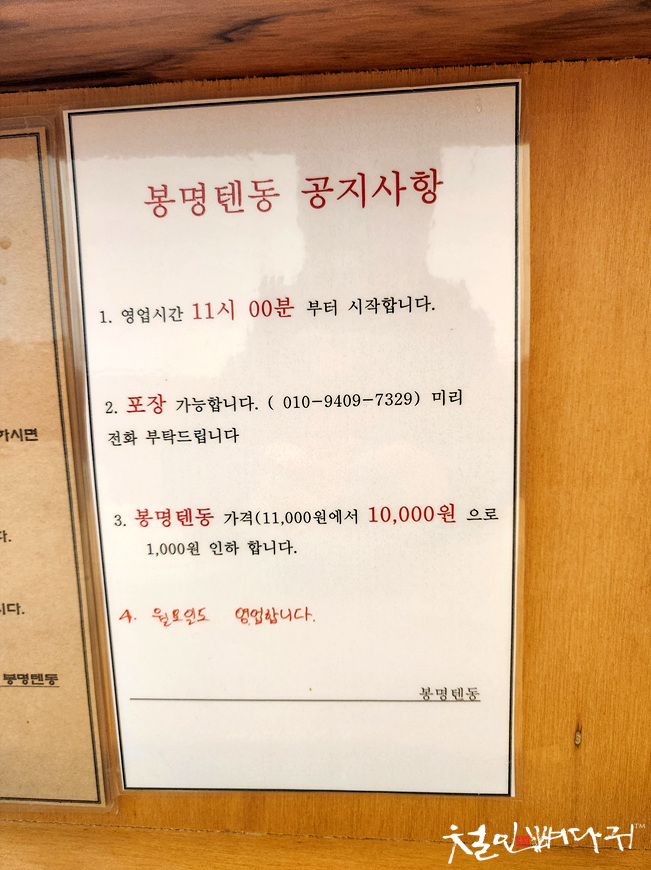 봉명텐동 공지사항
1. 영업시간 11시 00분 부터 시작합니다.
2. 포장 가능합니다. ( 010-9409-7329) 미리
전화 부탁드립니다
3. 봉명텐동 가격(11,000원에서 10,000원 으로
1,000원 인하 합니다.
4. 월요일도 영업합니다.
봉명텐동
하시면
다.
시다.
봉명텐동
철인뼈다귀™